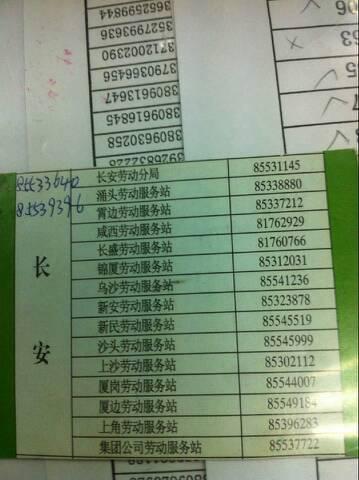 3652599844
3527993636
3712002390
3790366456
3809613647
3809616845
3809630258
3926832228
85533640
85539396
长安
长安劳动分局 85531145
涌头劳动服务站 85338880
霄边劳动服务站 85337212
咸西劳动服务站 81762929
长盛劳动服务站 81760766
锦厦劳动服务站 85312031
乌沙劳动服务站 85541236
新安劳动服务站 85323878
新民劳动服务站 85545519
沙头劳动服务站 85545999
上沙劳动服务站 85302112
厦岗劳动服务站 85544007
厦边劳动服务站 85549184
上角劳动服务站 85396283
集团公司劳动服务站 85537722